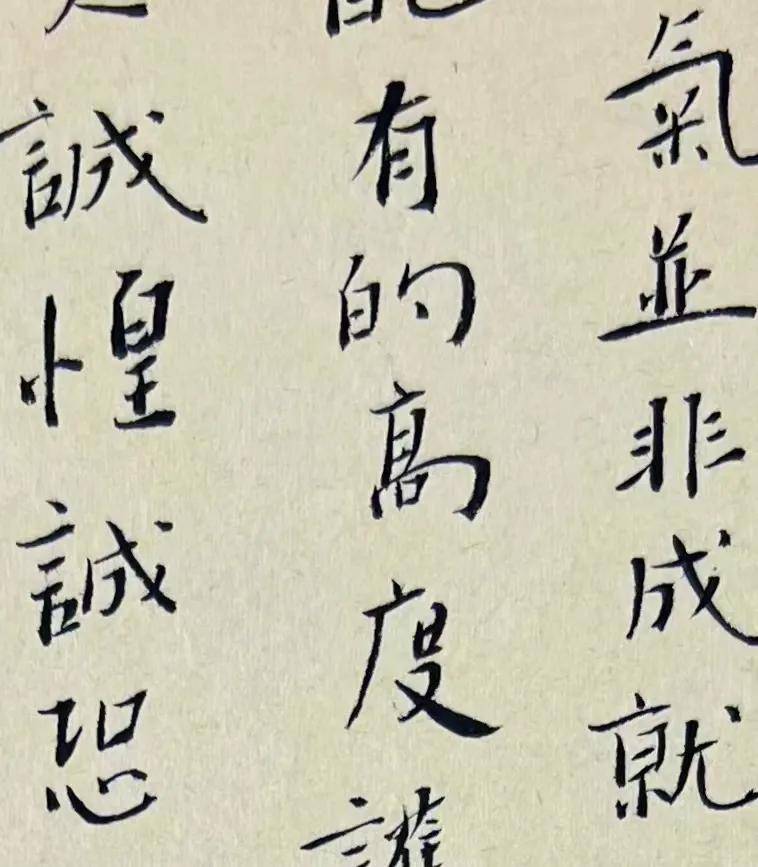 氣並非成就
有的高度
誠惶誠恐